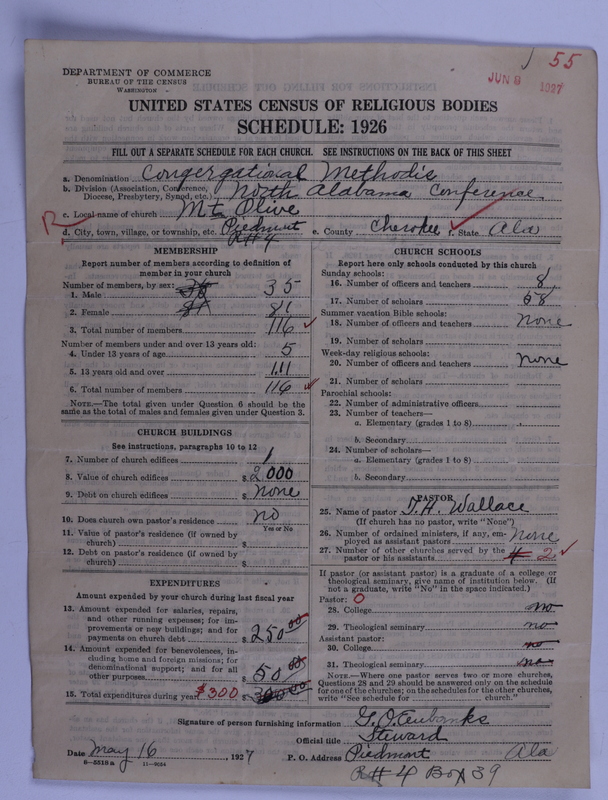 55
JUN 8 1927
DEPARTMENT OF COMMERCE
BUREAU OF THE CENSUS
WASHINGTON
UNITED STATES CENSUS OF RELIGIOUS BODIES
SCHEDULE: 1926
FILL OUT A SEPARATE SCHEDULE FOR EACH CHURCH. SEE INSTRUCTIONS ON THE BACK OF THIS SHEET
a. Denomination Congergational Methodis
b. Division (Association, Conference, Diocese, Presbytery, Synod, etc.) North Alabama Conference
c. Local name of church Mt Olive
R
d. City, town, village, or township, etc. Piedmont e. County Cherokee f. State Ala
R#4
MEMBERSHIP
Report number of members according to definition of
member in your church
Number of members, by sex:
1. Male 35
2. Female 81
3. Total number of members 116
Number of members under and over 13 years old:
4. Under 13 years of age 5
5. 13 years old and over 111
6. Total number of members 116
NOTE.—The total given under Question 6 should be the
same as the total of males and females given under Question 3.
CHURCH BUILDINGS
See instructions, paragraphs 10 to 12
7. Number of church edifices 1
8. Value of church edifices $2000
9. Debt on church edifices $None
10. Does church own pastor's residence no
Yes or No
11. Value of pastor's residence (if owned by
church) $
12. Debt on pastor's residence (if owned by
church) $
EXPENDITURES
Amount expended by your church during last fiscal year
13. Amount expended for salaries, repairs,
and other running expenses; for im-
provements or new buildings; and for
payments on church debt $250 00
14. Amount expended for benevolences, in-
cluding home and foreign missions; for
denominational support; and for all
other purposes $50 00
15. Total expenditures during year $300 $300.00
CHURCH SCHOOLS
Report here only schools conducted by this church
Sunday schools:
16. Number of officers and teachers 8
17. Number of scholars 68
Summer vacation Bible schools:
18. Number of officers and teachers None
19. Number of scholars
Week-day religious schools:
20. Number of officers and teachers None
21. Number of scholars
Parochial schools:
22. Number of administrative officers
23. Number of teachers—
a. Elementary (grades 1 to 8)
b. Secondary
24. Number of scholars—
a. Elementary (grades 1 to 8)
b. Secondary
PASTOR
25. Name of pastor T.H. Wallace
(If church has no pastor, write "None")
26. Number of ordained ministers, if any, em-
ployed as assistant pastors None
27. Number of other churches served by the
pastor or his assistants 2
If pastor (or assistant pastor) is a graduate of a college or
theological seminary, give name of institution below. (If
not a graduate, write "No" in the space indicated.)
Pastor: O
28. College no
29. Theological seminary no
Assistant pastor:
30. College no
31. Theological seminary no
NOTE.—Where one pastor serves two or more churches,
Questions 28 and 29 should be answered only on the schedule
for one of the churches; on the schedules for the other churches,
write "See schedule for church."
Signature of person furnishing information G.O. Eubanks
Official title Steward
Date May 16, 1927 P. O. Address Piedmont Ala
8-5518 a 11-9054
R#4 Box 39